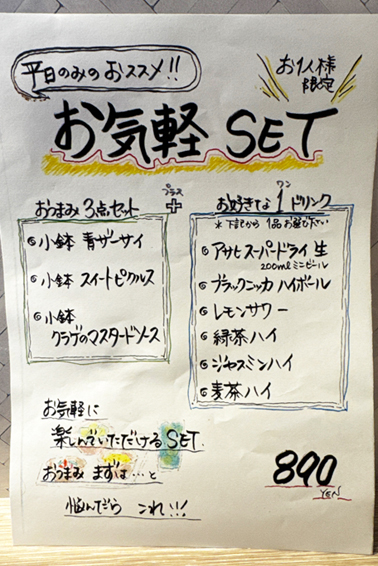 平日のみのおススメ!!
お1人様
限定
お気軽 SET
おつまみ 3点セット
プラス
+
お好きな 1 ドリンク
ワン
* 下記から 1品お選び下さい
小鉢 青ザーサイ
小鉢 スイートピクルス
小鉢
クラゲのマスタードソース
アサヒ スーパードライ 生
200ml ミニビール
ブラックニッカ ハイボール
レモンサワー
緑茶ハイ
ジャスミンハイ
麦茶ハイ
お気軽に
楽しんでいただける SET.
おつまみ まずは…と
悩んだら これ!!!
890
YEN